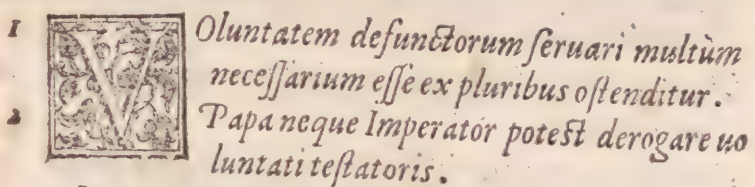 1 VOluntatem defunctorum ſeruari multùm
neceſſarium eſſe ex pluribus oſtenditur.
2 Papa neque Imperator poteſt derogare uo
luntati teſtatoris.